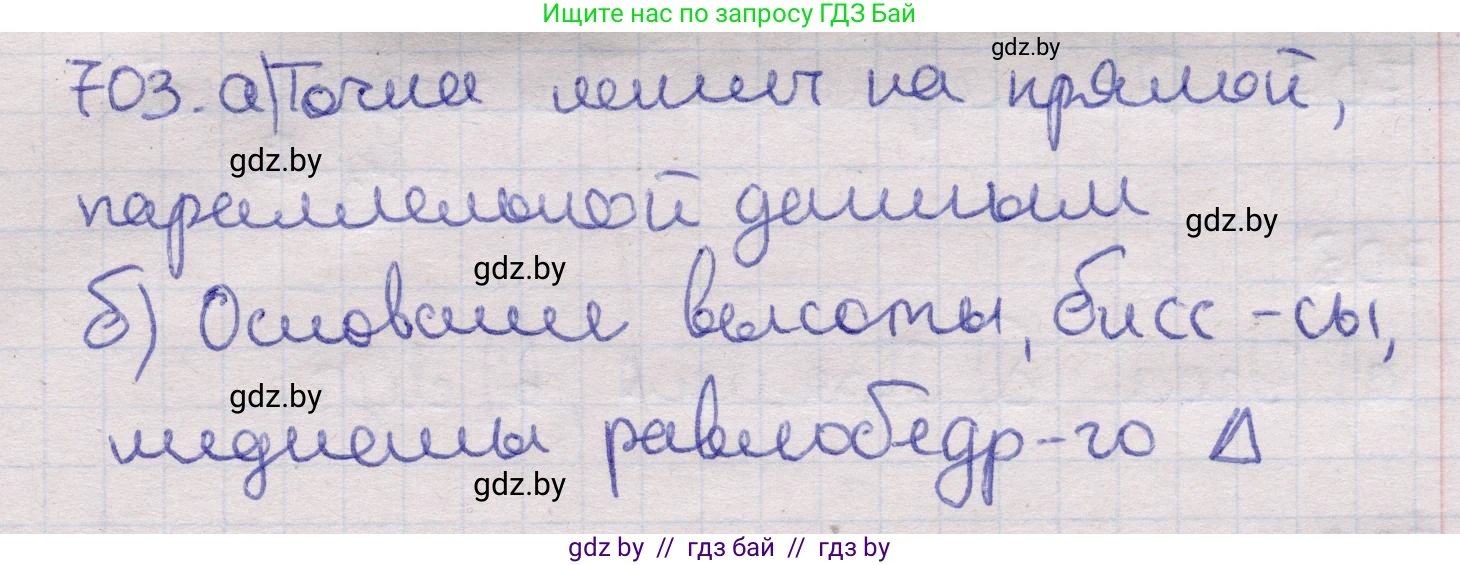 Ищите нас по запросу ГДЗ Бай
gdz.by
703. а) Точки лежит на прямой,
gdz.by
параллельной данным
gdz.by
gdz.by
б) Основание высоты, бисс-сы,
gdz.by
медианы равнобедр-го Δ
gdz.by
gdz by // гдз бай // гдз by